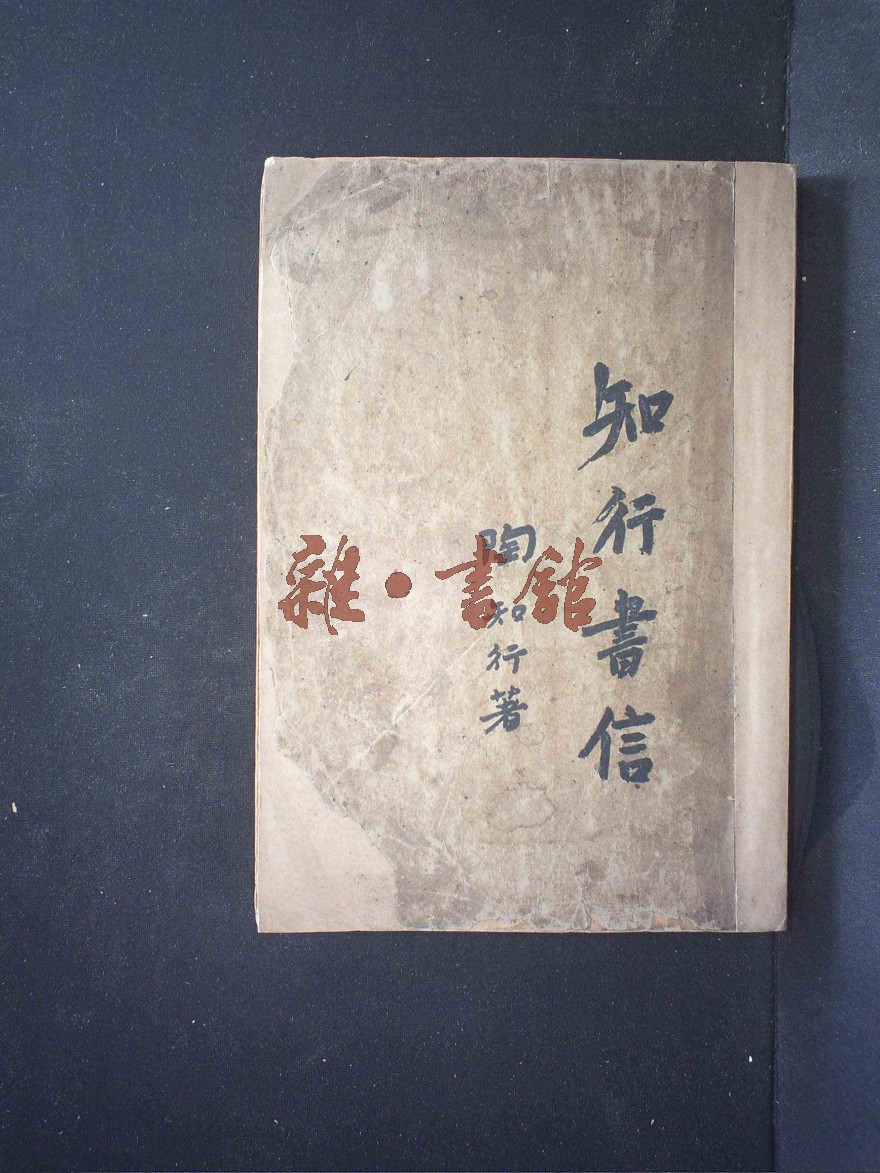 知行書信
陶知行著
雜·書館